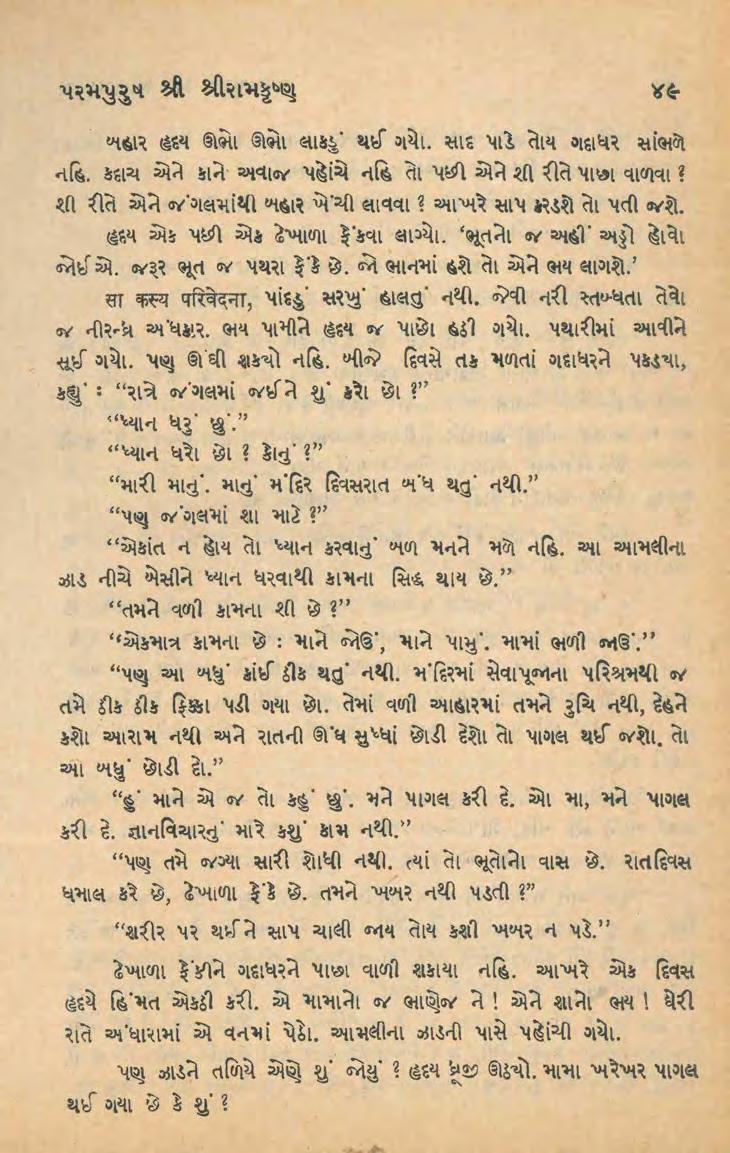 પરમપુરુષ શ્રી શ્રીરામકૃષ્ણ ૪૯
બહાર હૃદય ઊભો ઊભો લાકડું થઈ ગયો. સાદ પાડે તોય ગદાધર સાંભળે
નહિ. કદાચ એને કાને અવાજ પહોંચે નહિ તો પછી એને શી રીતે પાછા વાળવા ?
શી રીતે એને જંગલમાંથી બહાર ખેંચી લાવવા ? આખરે સાપ કરડશે તો પતી જશે.
હૃદય એક પછી એક ઢેખાળા ફેંકવા લાગ્યો. ‘ભૂતનો જ અહીં અડ્ડો હોવો
જોઈએ. જરૂર ભૂત જ પથરા ફેંકે છે. જો ભાનમાં હશે તો એને ભય લાગશે.’
सा कस्य परिवेदना, પાંદડું સરખું હાલતું નથી. જેવી નરી સ્તબ્ધતા તેવો
જ નીરન્ધ્ર અંધકાર. ભય પામીને હૃદય જ પાછો હઠી ગયો. પથારીમાં આવીને
સૂઈ ગયો. પણ ઊંઘી શકયો નહિ. બીજે દિવસે તક મળતાં ગદાધરને પકડયા,
કહ્યું : “રાત્રે જંગલમાં જઈને શું કરો છો ?”
“ધ્યાન ધરું છું.”
“ધ્યાન ધરો છો ? કોનું ?”
“મારી માનું. માનું મંદિર દિવસરાત બંધ થતું નથી.”
“પણ જંગલમાં શા માટે ?”
“એકાંત ન હોય તો ધ્યાન કરવાનું બળ મનને મળે નહિ. આ આમલીના
ઝાડ નીચે બેસીને ધ્યાન ધરવાથી કામના સિદ્ધ થાય છે.”
“તમને વળી કામના શી છે ?”
“એકમાત્ર કામના છે : માને જોઉં, માને પામું. મામાં ભળી જાઉં.”
“પણ આ બધું કાંઈ ઠીક થતું નથી. મંદિરમાં સેવાપૂજાના પરિશ્રમથી જ
તમે ઠીક ઠીક ફિક્કા પડી ગયા છો. તેમાં વળી આહારમાં તમને રુચિ નથી, દેહને
કશો આરામ નથી અને રાતની ઊંઘ સુધ્ધાં છોડી દેશો તો પાગલ થઈ જશો. તો
આ બધું છોડી દો.”
“હું માને એ જ તો કહું છું. મને પાગલ કરી દે. ઓ મા, મને પાગલ
કરી દે. જ્ઞાનવિચારનું મારે કશું કામ નથી.”
“પણ તમે જગ્યા સારી શોધી નથી. ત્યાં તો ભૂતોનો વાસ છે. રાતદિવસ
ધમાલ કરે છે, ઢેખાળા ફેંકે છે. તમને ખબર નથી પડતી ?”
“શરીર પર થઈને સાપ ચાલી જાય તોય કશી ખબર ન પડે.”
ઢેખાળા ફેંકીને ગદાધરને પાછા વાળી શકાયા નહિ. આખરે એક દિવસ
હૃદયે હિંમત એકઠી કરી. એ મામાનો જ ભાણેજ ને ! એને શાનો ભય ! ઘેરી
રાતે અંધારામાં એ વનમાં પેઠો. આમલીના ઝાડની પાસે પહોંચી ગયો.
પણ ઝાડને તળિયે એણે શું જોયું ? હૃદય ધ્રૂજી ઊઠયો. મામા ખરેખર પાગલ
થઈ ગયા છે કે શું ?